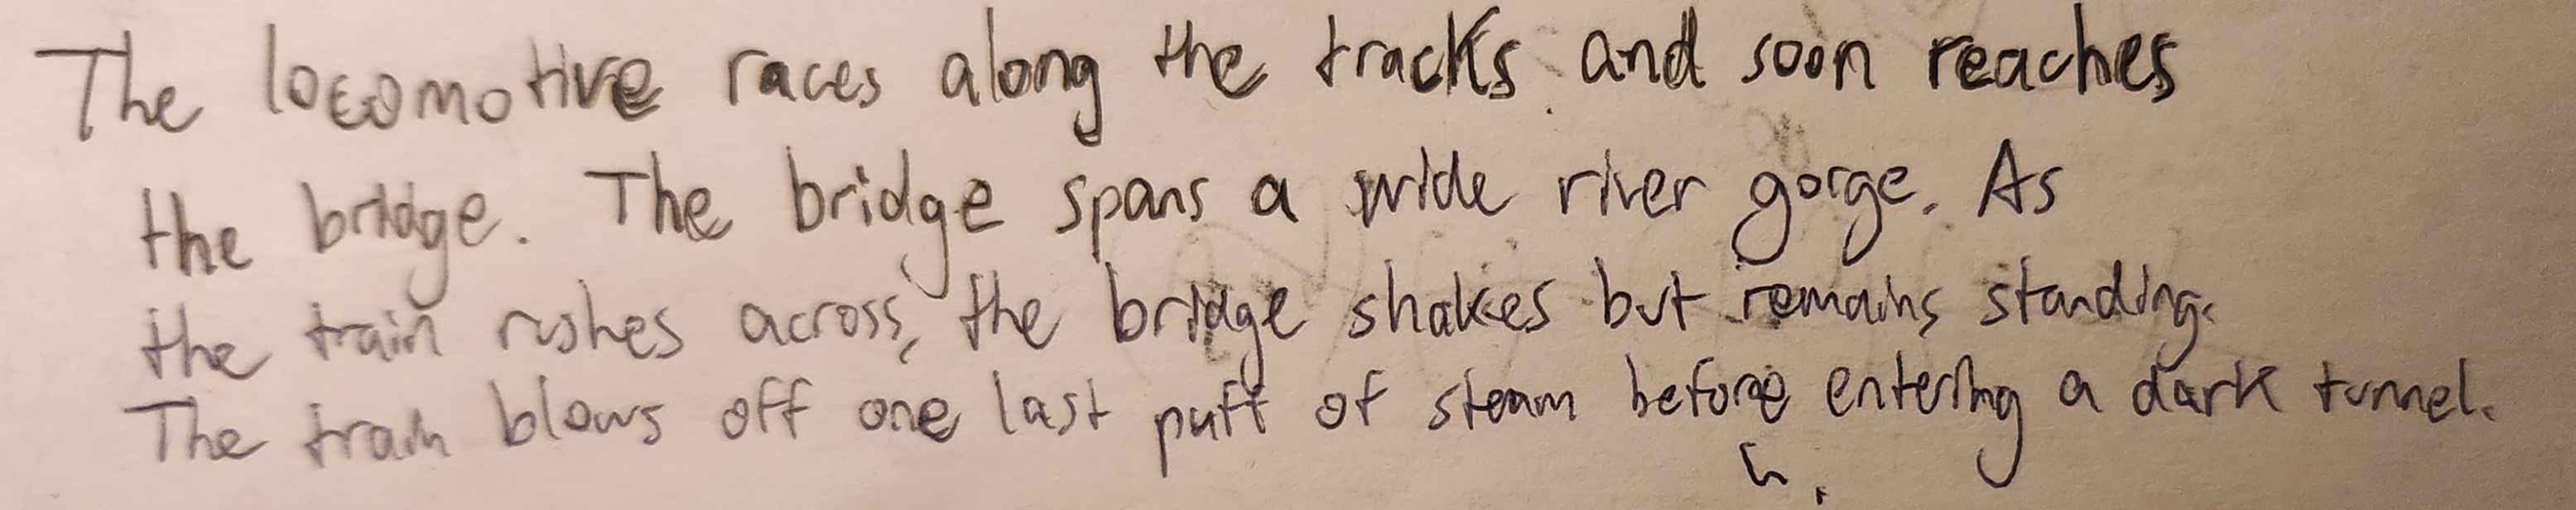 The locomotive races along the tracks and soon reaches
the bridge. The bridge spans a wide river gorge. As
the train rushes across, the bridge shakes but remains standing.
The train blows off one last puff of steam before entering a dark tunnel.